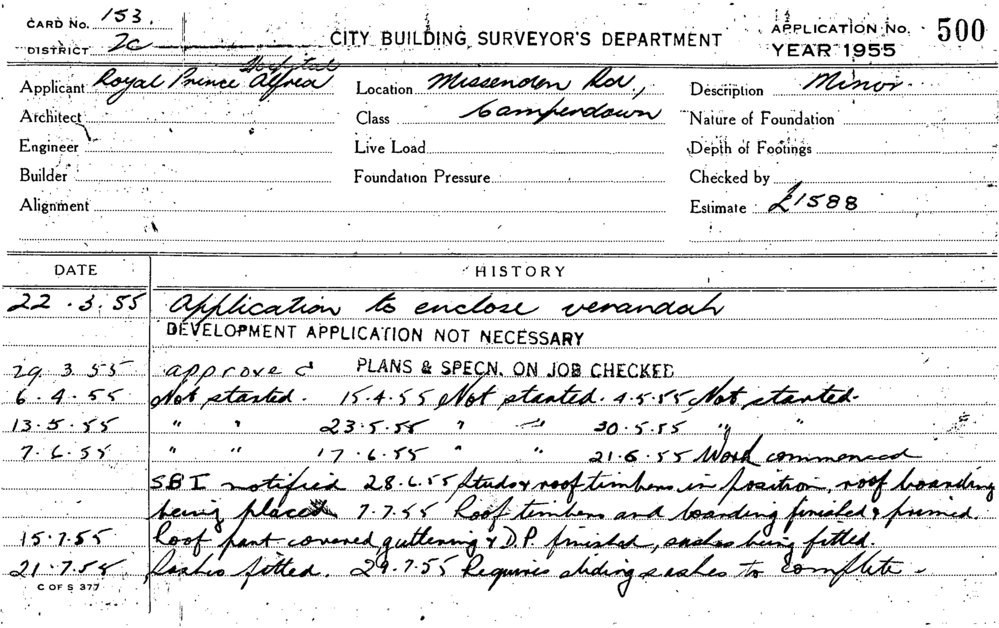 CARD No. 153.
DISTRICT 2c
CITY BUILDING SURVEYOR'S DEPARTMENT
APPLICATION No. 500
YEAR 1955
Applicant Royal Prince Alfred Hospital
Location Missenden Rd, Camperdown
Description Minor
Architect
Class
Nature of Foundation
Engineer
Live Load
Depth of Footings
Builder
Foundation Pressure
Checked by
Alignment
Estimate £1588
DATE HISTORY
22.3.55 Application to enclose verandah
DEVELOPMENT APPLICATION NOT NECESSARY
29.3.55 approved PLANS & SPECN. ON JOB CHECKED
6.4.55 Not started. 15.4.55 Not started. 4.5.55 Not started.
13.5.55 " " 23.5.55 " " 30.5.55 " "
7.6.55 " " 17.6.55 " " 21.6.55 Work commenced
SBI notified 28.6.55 Studs & roof timbers in position, roof boarding
being placed 7.7.55 Roof timbers and boarding finished & primed.
15.7.55 Roof part covered, guttering & D.P. finished, sashes being fitted.
21.7.55 Sashes fitted. 29.7.55 Requires sliding sashes to complete.
C OF S 377